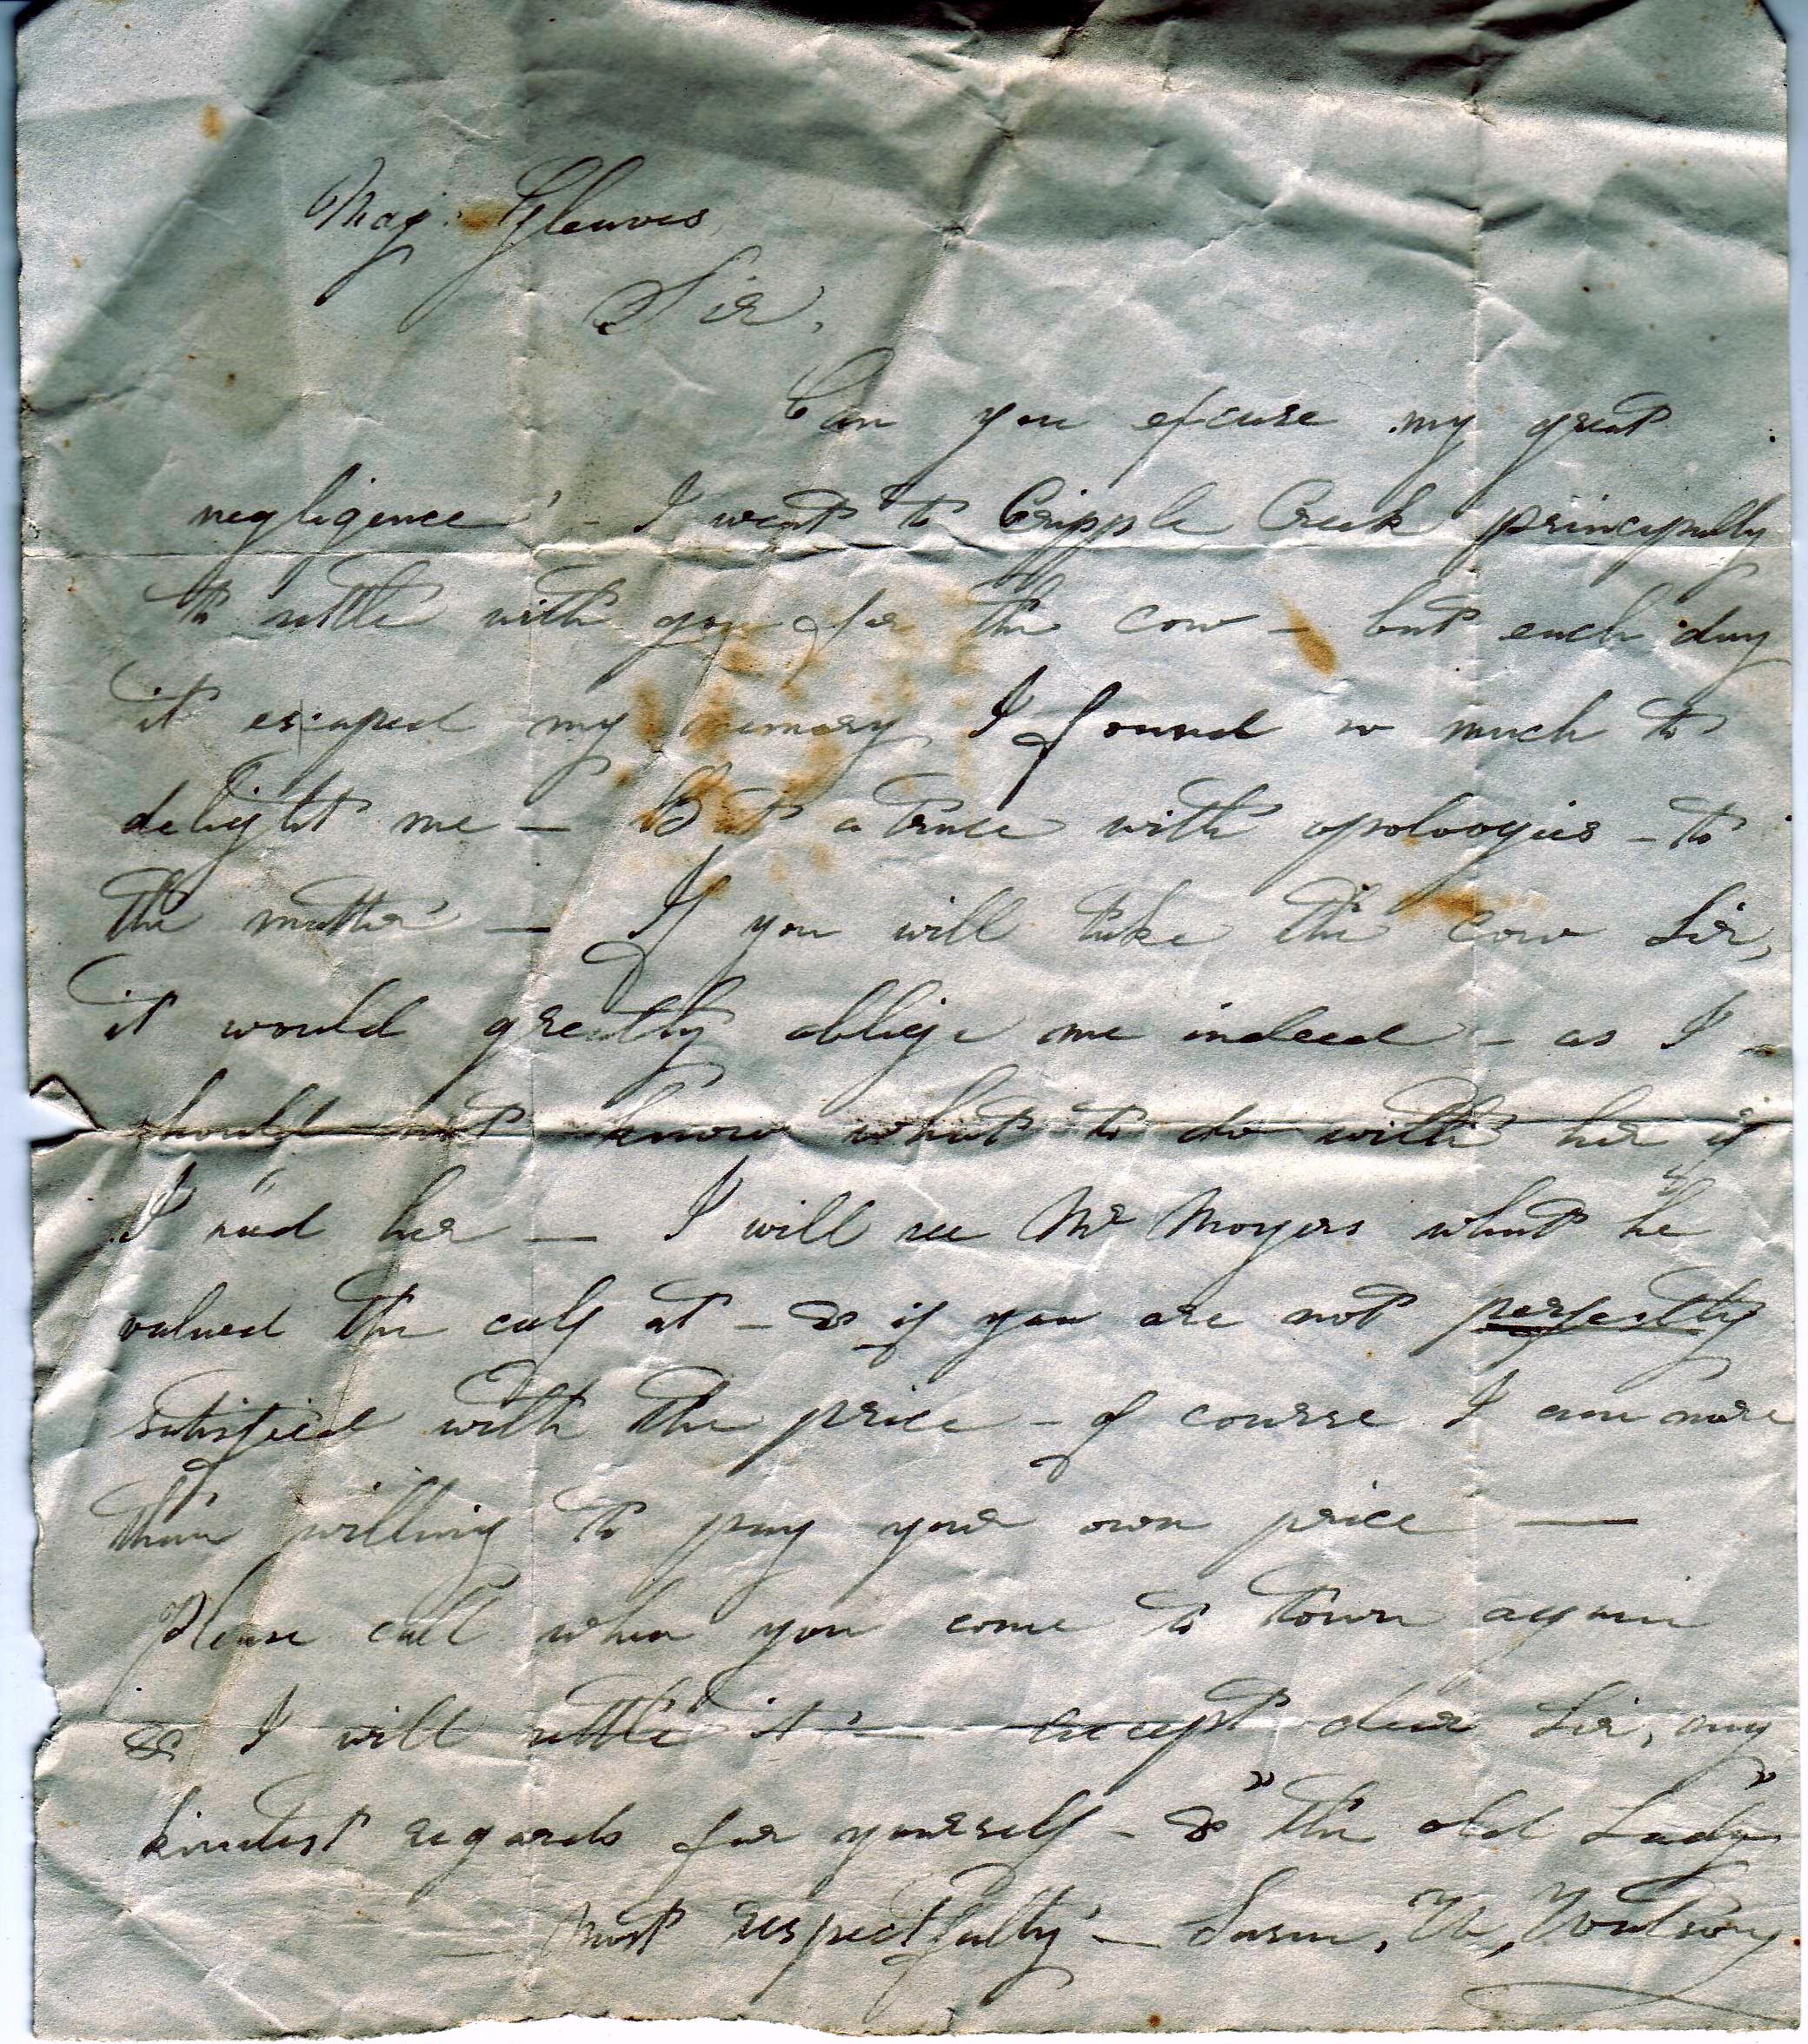 Maj. Gleaves,
Sir,
Can you excuse my great
negligence - I went to Cripple Creek principally
to settle with you for the cow - but each day
it escaped my memory I found so much to
delight me - But a truce with apologies - to
the matter - If you will take the cow Sir,
it would greatly oblige me indeed - as I
should not know what to do with her if
I had her - I will see Mr Moyers what he
valued the calf at - & if you are not perfectly
satisfied with the price - of course I am more
than willing to pay your own price -
Please call when you come to town again
& I will settle it - Accept dear Sir, my
kindest regards for yourself - & "the old Lady"
- Most respectfully - Susan